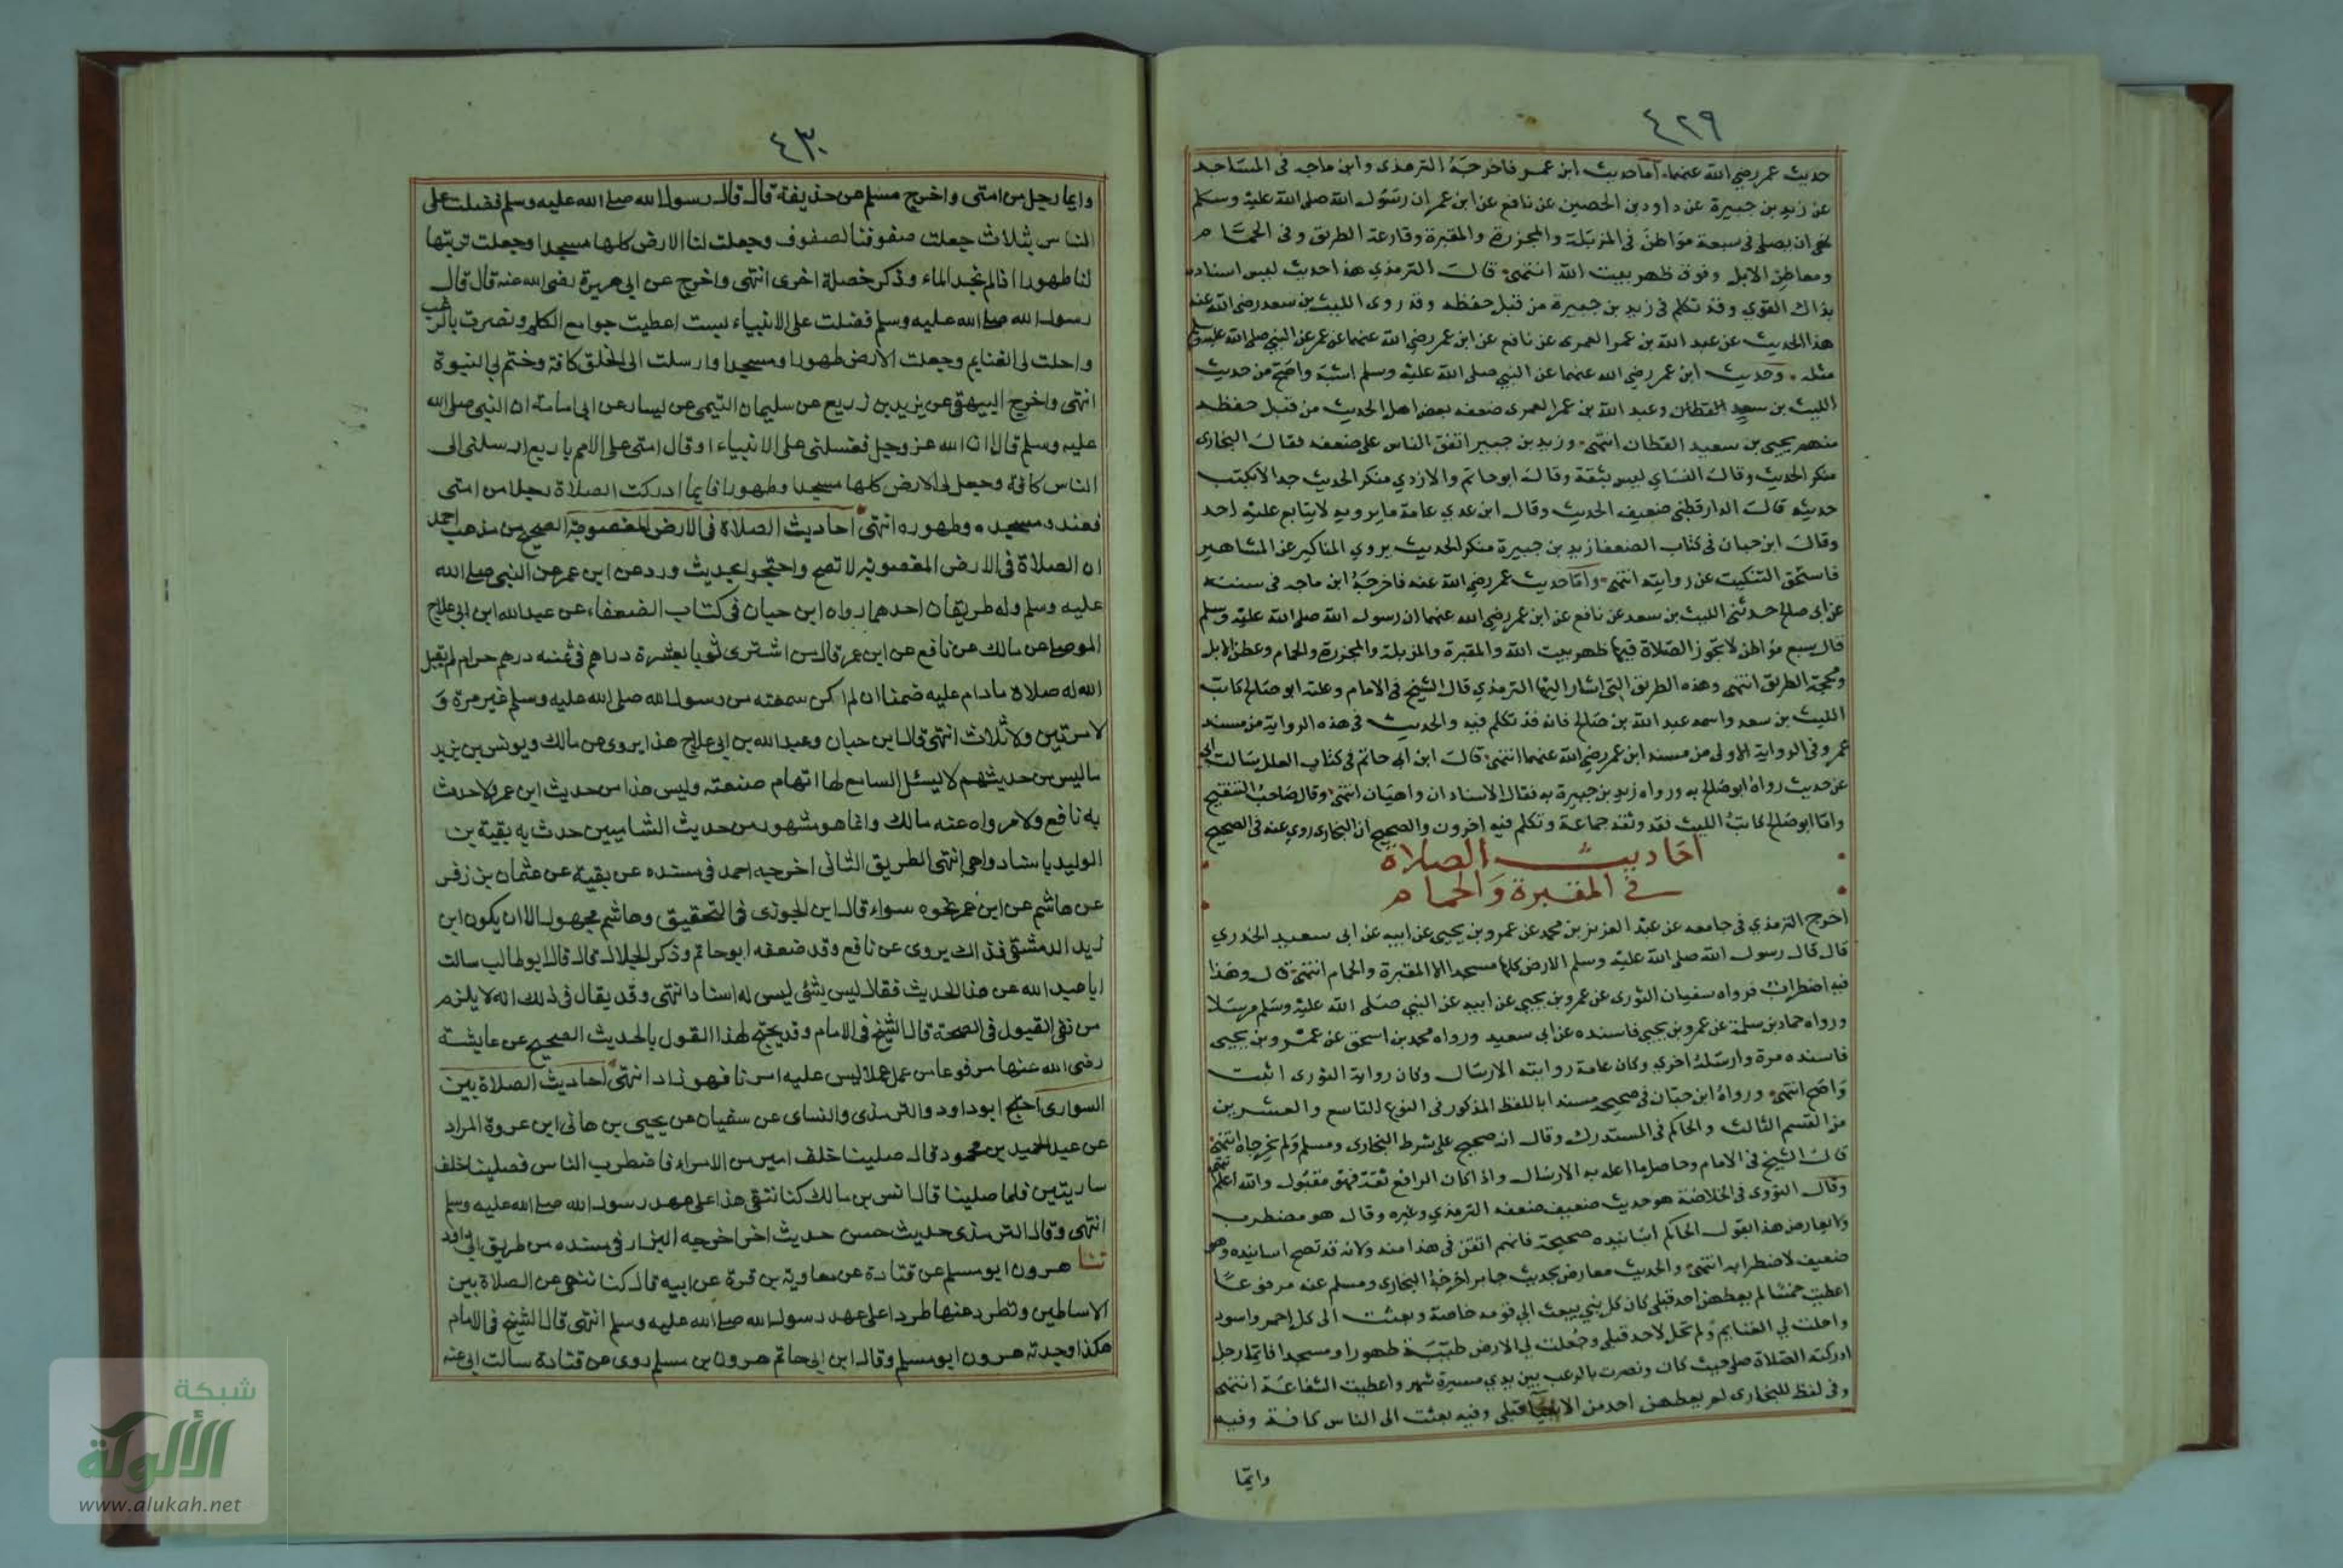 ٤٢٩
حديث عمر رضي الله عنهما، أما حديث ابن عمر فاخرجه الترمذى وابن ماجه فى المساجد
عن زيد بن جبيرة عن داود بن الحصين عن نافع عن ابن عمر ان رسول الله صلى الله عليه وسلم
نهى ان يصلى فى سبعة مواطن فى المزبلة والمجزرة والمقبرة وقارعة الطريق وفى الحمام
ومعاطن الابل وفوق ظهر بيت الله انتهى قال الترمذي هذا حديث ليس اسناده
بذاك القوي وقد تكلم فى زيد بن جبيرة من قبل حفظه وقد روى الليث بن سعد رضى الله عنه
هذا الحديث عن عبد الله بن عمر العمرى عن نافع عن ابن عمر رضي الله عنهما عن عمر عن النبي صلى الله عليه وسلم
مثله وحديث ابن عمر رضي الله عنهما عن النبي صلى الله عليه وسلم اشبه واصح من حديث
الليث بن سعيد القطان وعبد الله بن عمر العمرى ضعفه بعض اهل الحديث من قبل حفظه
منهم يحيى بن سعيد القطان انتهى وزيد بن جبير اتفق الناس على ضعفه فقال البخارى
منكر الحديث وقال النساي ليس بثقة وقال ابو حاتم والازدي منكر الحديث جدا لا يكتب
حديثه قال الدارقطنى ضعيف الحديث وقال ابن عدي عامة ما يرويه لا يتابع عليه احد
وقال ابن حبان فى كتاب الضعفا زيد بن جبيرة منكر الحديث يروي المناكير عن المشاهير
فاستحق التنكيت عن روايته انتهى واما حديث عمر رضي الله عنه فاخرجه ابن ماجه فى سننه
عن ابى صالح حدثنى الليث بن سعد عن نافع عن ابن عمر رضي الله عنهما ان رسول الله صلى الله عليه وسلم
قال سبع مواطن لا تجوز الصلاة فيها ظهر بيت الله والمقبرة والمزبلة والمجزرة والحمام وعطن الابل
ومحجة الطريق انتهى وهذه الطريق التى اشار اليها الترمذي قال الشيخ فى الامام وعلته ابو صالح كاتب
الليث بن سعد واسمه عبد الله بن صالح فانه قد تكلم فيه والحديث فى هذه الرواية من مسند
عمر وفى الرواية الاولى من مسند ابن عمر رضي الله عنهما انتهى قال ابن ابى حاتم فى كتاب العلل سالت ابى
عن حديث رواه ابو صالح به ورواه زيد بن جبيرة به فقال الاسنادان واهيان انتهى وقال صاحب التنقيح
واما ابو صالح كاتب الليث فقد وثقه جماعة وتكلم فيه اخرون والصحيح ان البخارى روي عنه فى الصحيح
احاديث الصلاة
فى المقبرة والحمام
اخرج الترمذي فى جامعه عن عبد العزيز بن محمد عن عمرو بن يحيى عن ابيه عن ابى سعيد الخدري
قال قال رسول الله صلى الله عليه وسلم الارض كلها مسجد الا المقبرة والحمام انتهى قال وهذا
فيه اضطراب فرواه سفيان الثورى عن عمرو بن يحيى عن ابيه عن النبي صلى الله عليه وسلم مرسلا
ورواه حماد بن سلمة عن عمرو بن يحيى فاسنده عن ابي سعيد ورواه محمد بن اسحق عن عمرو بن يحيى
فاسنده مرة وارسله اخري وكان عامة روايته الارسال وكان رواية الثورى اثبت
واصح انتهى ورواه ابن حبان فى صحيحه مسندا باللفظ المذكور فى النوع التاسع والعشرين
من القسم الثالث والحاكم فى المستدرك وقال انه صحيح على شرط البخارى ومسلم ولم يخرجاه انتهى
قال الشيخ فى الامام وحاصل ما اعل به الارسال واذا كان الرافع ثقة فهو مقبول والله اعلم انتهى
وقال النووى فى الخلاصة هو حديث ضعيف ضعفه الترمذي وغيره وقال هو مضطرب
ولا يعارض هذا بقول الحاكم اسانيده صحيحة فانهم اتقن فى هذا منه ولانه قد تصح اسانيده وهو
ضعيف لاضطرابه انتهى والحديث معارض بحديث جابر اخرجه البخارى ومسلم عنه مرفوعا
اعطيت خمسا لم يعطهن احد قبلى كان كل نبي يبعث الى قومه خاصة وبعثت الى كل احمر واسود
واحلت لي الغنايم ولم تحل لاحد قبلى وجعلت لي الارض طيبة طهورا ومسجدا فايما رجل
ادركته الصلاة صلى حيث كان ونصرت بالرعب بين يدي مسيرة شهر واعطيت الشفاعة انتهى
وفى لفظ للبخارى لم يعطهن احد من الانبيا قبلى وفيه بعثت الى الناس كافة وفيه
وايما
٤٣٠
وايما رجل من امتى واخرج مسلم عن حذيفة قال قال رسول الله صلى الله عليه وسلم فضلت على
الناس بثلاث جعلت صفوفنا لصفوف وجعلت لنا الارض كلها مسجدا وجعلت تربتها
لنا طهورا اذا لم نجد الماء وذكر خصلة اخرى انتهى واخرج عن ابى هريرة رضى الله عنه قال قال
رسول الله صلى الله عليه وسلم فضلت على الانبياء بست اعطيت جوامع الكلم ونصرت بالرعب
واحلت لى الغنايم وجعلت الارض طهورا ومسجدا وارسلت الى الخلق كافة وختم بي النبوة
انتهى واخرج البيهقى عن يزيد بن زريع عن سليمان التيمى عن يسار عن ابى امامة ان النبى صلى الله
عليه وسلم قال ان الله عز وجل فضلنى على الانبياء او قال امتى على الامم باربع ارسلنى الى
الناس كافة وجعل لى الارض كلها مسجدا وطهورا فايما ادركت الصلاة رجلا من امتى
فعنده مسجده وطهوره انتهى احاديث الصلاة فى الارض المغصوبة الصحيح من مذهب احمد
ان الصلاة فى الارض المغصوبة لا تصح واحتجوا بحديث ورد عن ابن عمر عن النبى صلى الله
عليه وسلم وله طريقان احدهما رواه ابن حبان فى كتاب الضعفاء عن عبد الله ابن ابى علاج
الموصلى عن مالك عن نافع عن ابن عمر قال من اشترى ثوبا بعشرة دراهم فى ثمنه درهم حرام لم يقبل
الله له صلاة ما دام عليه ضمنا ان لم اكن سمعته من رسول الله صلى الله عليه وسلم غير مرة و
لا مرتين ولا ثلاث انتهى قال ابن حبان وعبد الله بن ابى علاج هذا يروى عن مالك ويونس بن يزيد
ما ليس من حديثهم لا يسئل السامع لها اتهام صنعته وليس هذا من حديث ابن عمر ولا حدث
به نافع ولا رواه عنه مالك وانما هو مشهور من حديث الشاميين حدث به بقية بن
الوليد باسناد واهى انتهى الطريق الثانى اخرجه احمد فى مسنده عن بقية عن عثمان بن زفر
عن هاشم عن ابن عمر نحوه سواء قال ابن الجوزى فى التحقيق وهاشم مجهول الا ان يكون ابن
زيد الدمشقى فذاك يروى عن نافع وقد ضعفه ابو حاتم وذكر الخلال قال قال ابو طالب سالت
ابا عبد الله عن هذا الحديث فقال ليس بشئ ليس له اسناد انتهى وقد يقال فى ذلك انه لا يلزم
من نفى القبول فى الصحة قال الشيخ فى الامام وقد يحتج لهذا القول بالحديث الصحيح عن عايشة
رضى الله عنها مرفوعا من عمل عملا ليس عليه امرنا فهو رد انتهى احاديث الصلاة بين
السوارى احتج ابو داود والترمذى والنساى عن سفيان عن يحيى بن هانى ابن عروة المراد
عن عبد الحميد بن محمود قال صلينا خلف امير من الامراء فاضطرب الناس فصلينا خلف
ساريتين فلما صلينا قال انس بن مالك كنا نتقى هذا على عهد رسول الله صلى الله عليه وسلم
انتهى وقال الترمذى حديث حسن حديث اخر اخرجه البزار فى مسنده من طريق
ثنا هرون ابو مسلم عن قتادة عن معاوية بن قرة عن ابيه قال كنا ننهى عن الصلاة بين
الاساطين ونطرد عنها طردا على عهد رسول الله صلى الله عليه وسلم انتهى قال الشيخ فى الامام
هكذا وجدته هرون ابو مسلم وقال ابن ابى حاتم هرون بن مسلم روى عن قتادة سالت ابى عنه
شبكة
الألوكة
www.alukah.net